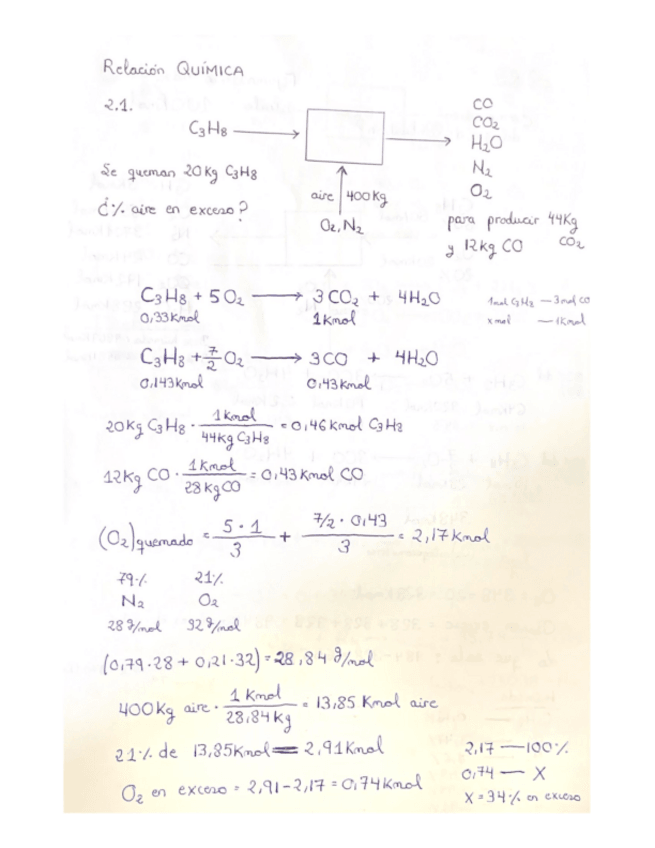 Relación QUÍMICA
2.1.
C3H8
CO
CO2
H2O
N2
O2
Se queman 20Kg C3H8
¿% aire en exceso?
aire 400Kg
O2, N2
para producir 44Kg CO2
y 12kg CO
C3H8 + 5O2 → 3CO2 + 4H2O
0,33Kmol 1Kmol
1mol C3H8 — 3mol CO
x mol — 1Kmol
C3H8 + 7/2 O2 → 3CO + 4H2O
0,143Kmol 0,43Kmol
20Kg C3H8 · 1Kmol/44Kg C3H8 = 0,46Kmol C3H8
12Kg CO · 1Kmol/28KgCO = 0,43Kmol CO
(O2)quemado = 5·1/3 + 7/2·0,43/3 = 2,17Kmol
79% 21%
N2 O2
28g/mol 32g/mol
(0,79·28 + 0,21·32) = 28,84 g/mol
400Kg aire · 1Kmol/28,84kg = 13,85 Kmol aire
21% de 13,85Kmol = 2,91Kmol
O2 en exceso = 2,91-2,17 = 0,74Kmol
2,17 — 100%
0,74 — X
X = 34% en exceso